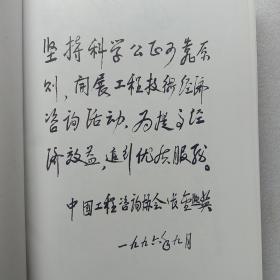 坚持科学公正可靠原
则，开展工程技术经济
咨询活动，为提高经
济效益，追引优质服务。
中国工程咨询协会 
一九九六年九月